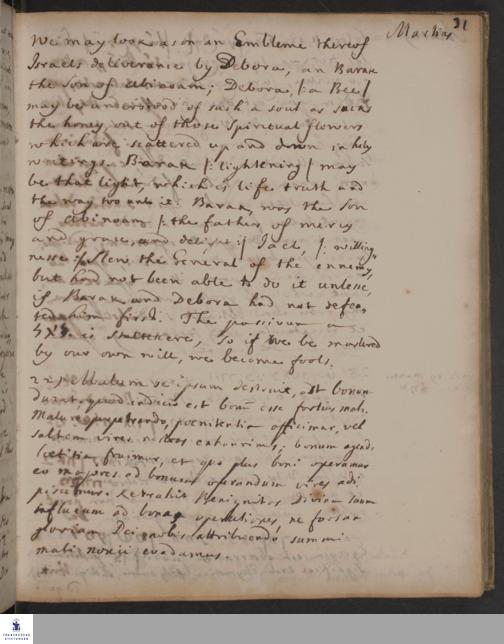 31
Martius
We may look as on an Embleme thereof
Israels deliverance by Debora, an Barak
the son of abinoam; Debora, /: a Bee /
may be understood of such a soul as sucks
the honey out of those Spiritual flowers
which are scattered up and down in holy
writings. Barak /: lightening / may
be that light, which is life truth and
the way too unto it: Barak, was the son
of abinoam /: the father of mercy
and grace, and delight :/ Jael, /: willing
nesse :/ slew the General of the ennemy,
but had not been able to do it unlesse,
if Barak and Debora had not defea
ted him first. The passivum a
is stultescere, so if we be mastered
by our own will, we become fools.
22) Malum se ipsum destruit, ast bonum
durat, quod indicio est bonū esse fortius malo.
Malum perpetrando, poenitentia afficimur, vel
saltem vires nostras exhaurimus; bonum agend.
laetitia fruimur, et quo plus boni operamur
eo majores ad bonum operandum vires adi
piscimur. Retrahit Benignitas divina suum
influxum ad bonas operationes, ne forsan
gloriam Dei nobis attribuendo summi
mali noxii evadamus.
FRANCKESCHE
STIFTUNGEN